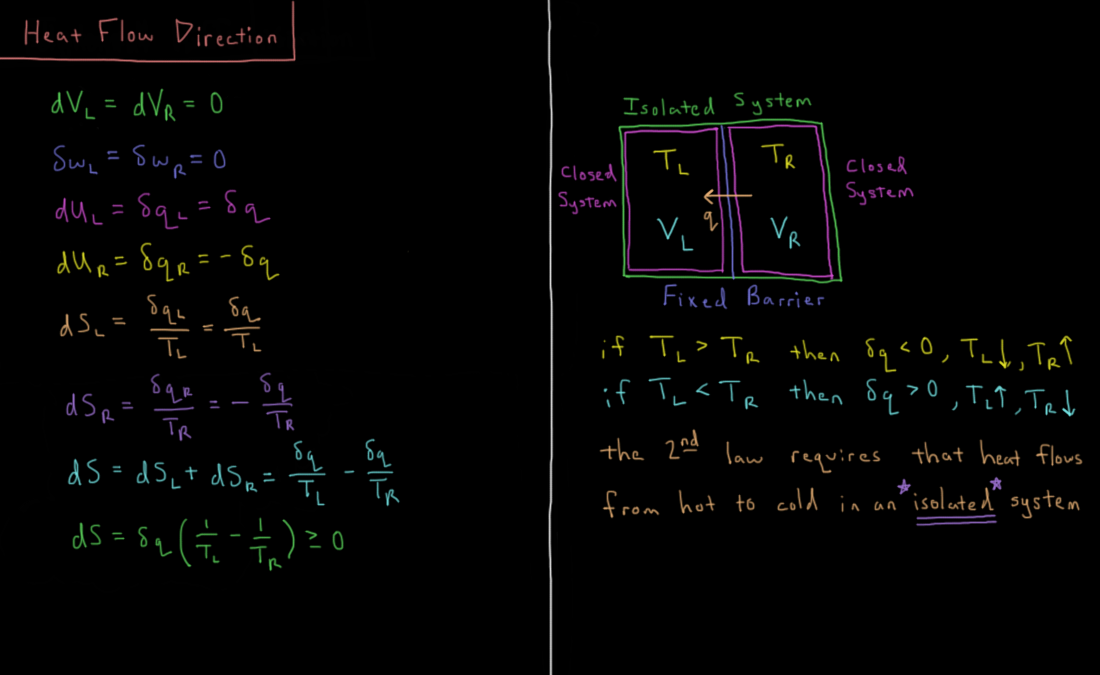 Heat Flow Direction
dV_L = dV_R = 0
δw_L = δw_R = 0
dU_L = δq_L = δq
dU_R = δq_R = -δq
dS_L = δq_L/T_L = δq/T_L
dS_R = δq_R/T_R = -δq/T_R
dS = dS_L + dS_R = δq/T_L - δq/T_R
dS = δq(1/T_L - 1/T_R) ≥ 0
Isolated System
Closed System
T_L
T_R
q
V_L
V_R
Closed System
Fixed Barrier
if T_L > T_R then δq < 0, T_L↓, T_R↑
if T_L < T_R then δq > 0, T_L↑, T_R↓
the 2nd law requires that heat flows
from hot to cold in an *isolated* system